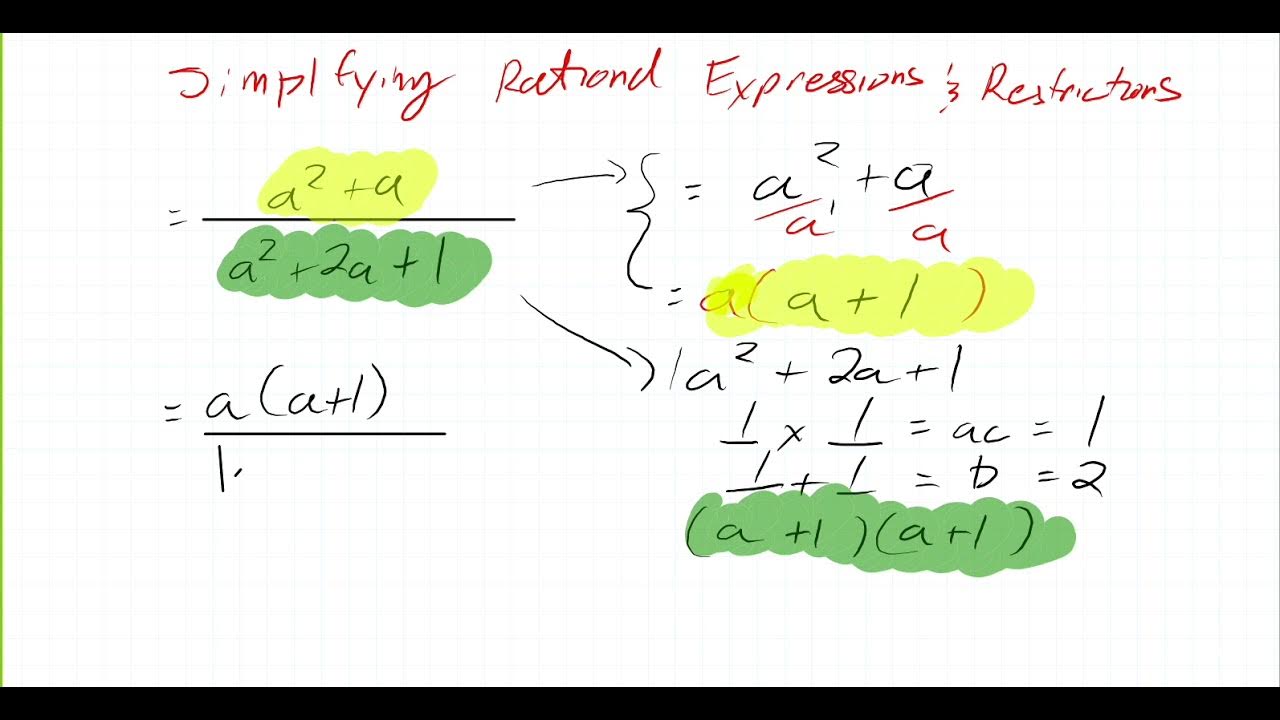 Simplifying Rational Expressions & Restrictions
= a² + a / a² + 2a + 1
= a² + a / a a
= a( a + 1 )
1a² + 2a + 1
1 × 1 = ac = 1
1 + 1 = b = 2
(a + 1)(a + 1)
= a(a+1)